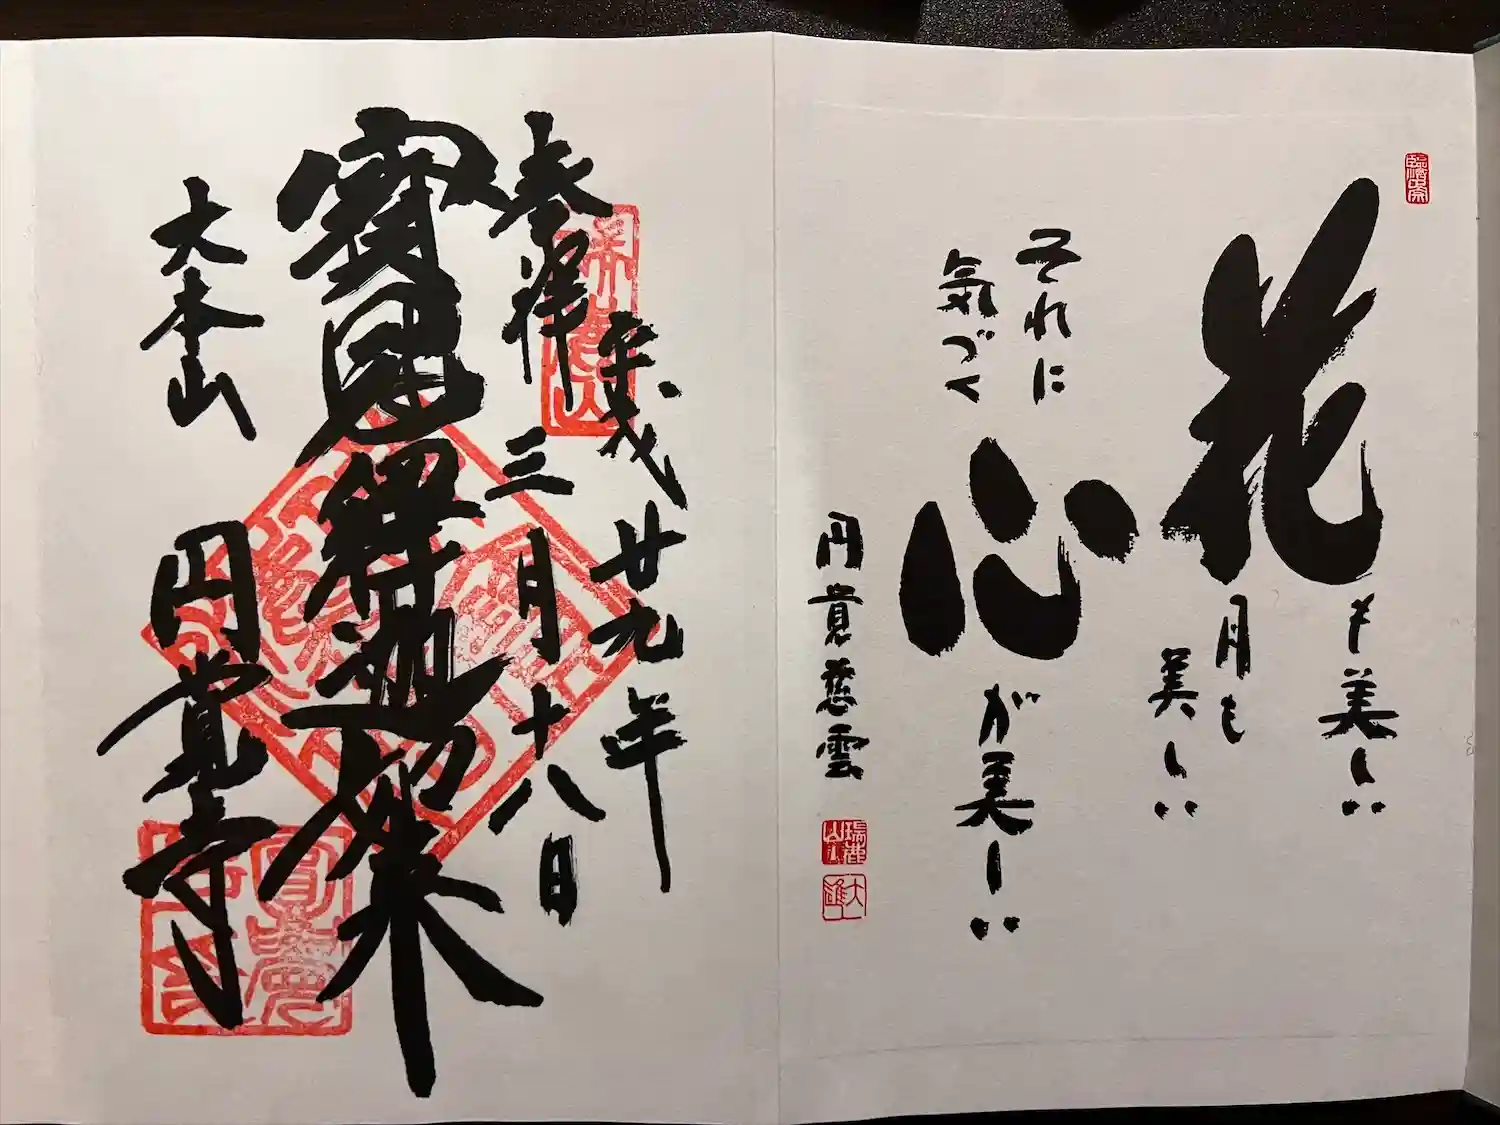 花も美しい
月も
美しい
それに
気づく
心が美しい
円覚慈雲
奉拝
平成廿九年
三月十八日
寳冠釋迦如来
大本山
円覚寺